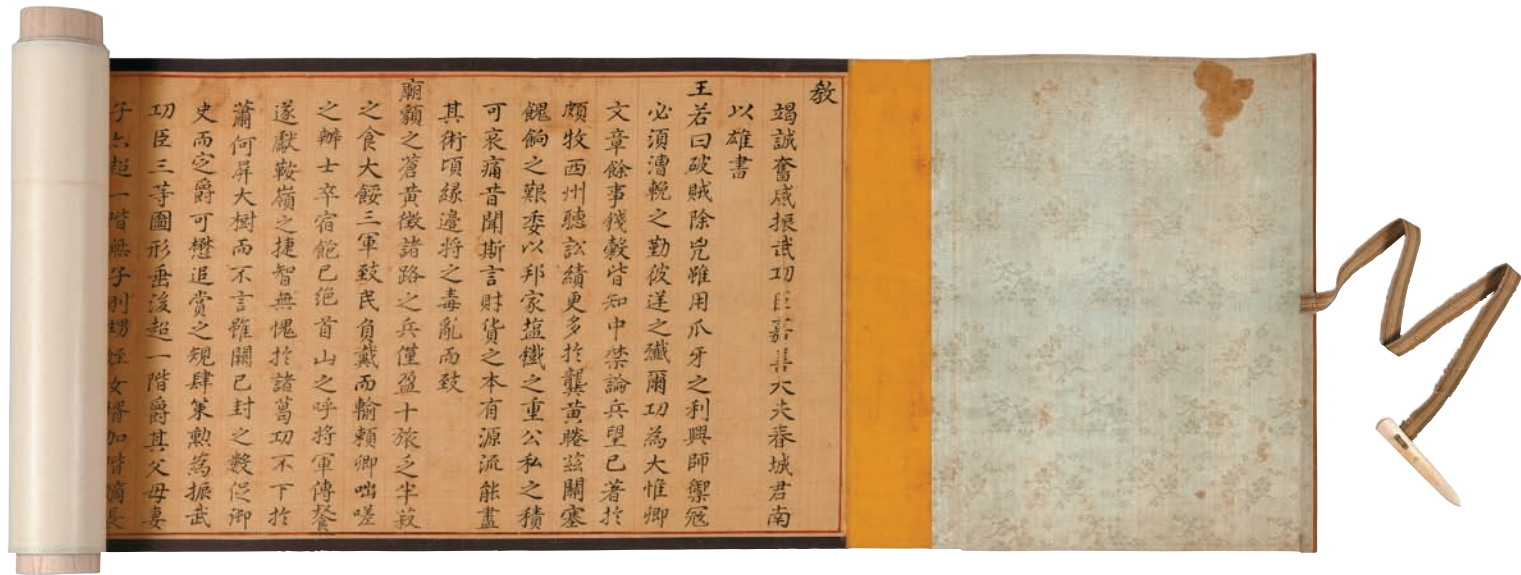 教
竭誠奮威振武功臣嘉善大夫春城君南
以雄書
王若曰破賊除兇雖用爪牙之利興師禦冦
必須漕輓之勤彼逆之殲爾功為大惟卿
文章餘事錢穀皆知中禁論兵望已著於
頗牧西州聽訟績更多於龔黃睠茲關塞
餽餉之艱委以邦家塩鐵之重公私之積
可哀痛昔聞斯言財貨之本有源流能盡
其術頃緣邊將之毒亂而致
廟顙之蒼黃徵諸路之兵僅盈十旅之半
之食大餒三軍致民負戴而輸賴卿咄嗟
之辦士卒宿飽已絕首山之呼將軍傳餐
遂獻鞍嶺之捷智無愧於諸葛功不下於
蕭何屏大樹而不言雖關已封之數促御
史而定爵可懋追賞之規肆策勳為振武
功臣三等圖形垂後超一階爵其父母妻
子亦超一階無子則甥姪女壻加階嫡長